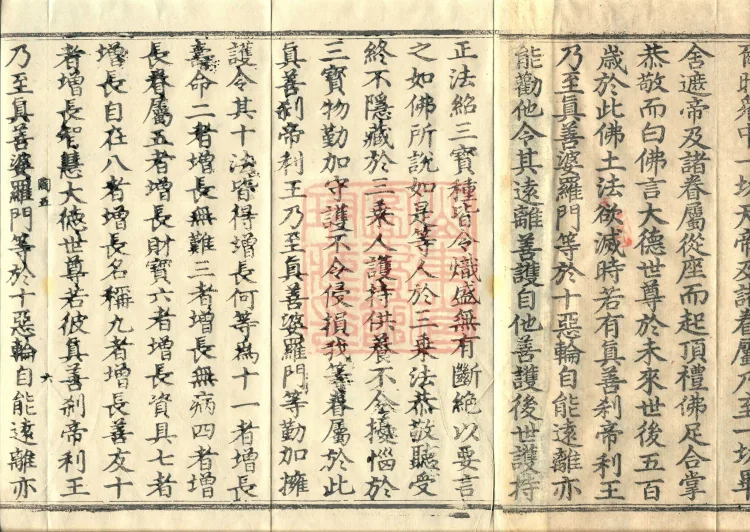 時衆中一切天帝及諸眷屬乃至一切畢
舍遮帝及諸眷屬從座而起頂禮佛足合掌
恭敬而白佛言大德世尊於未來世後五百
歲於此佛土法欲滅時若有真善刹帝利王
乃至真善婆羅門等於十惡輪自能遠離亦
能勸他令其遠離善護自他善護後世護持
正法紹三寶種皆令熾盛無有斷絕以要言
之如佛所說如是等人於三乘法恭敬聽受
終不隱藏於三乘人護持供養不令擾惱於
三寶物勤加守護不令侵損我等眷屬於此
真善刹帝利王乃至真善婆羅門等勤加擁
護令其十法皆得增長何等爲十一者增長
壽命二者增長無難三者增長無病四者增
長眷屬五者增長財寶六者增長資具七者
增長自在八者增長名稱九者增長善友十
者增長智慧大德世尊若彼真善刹帝利王
五 六
乃至真善婆羅門等於十惡輪自能遠離亦